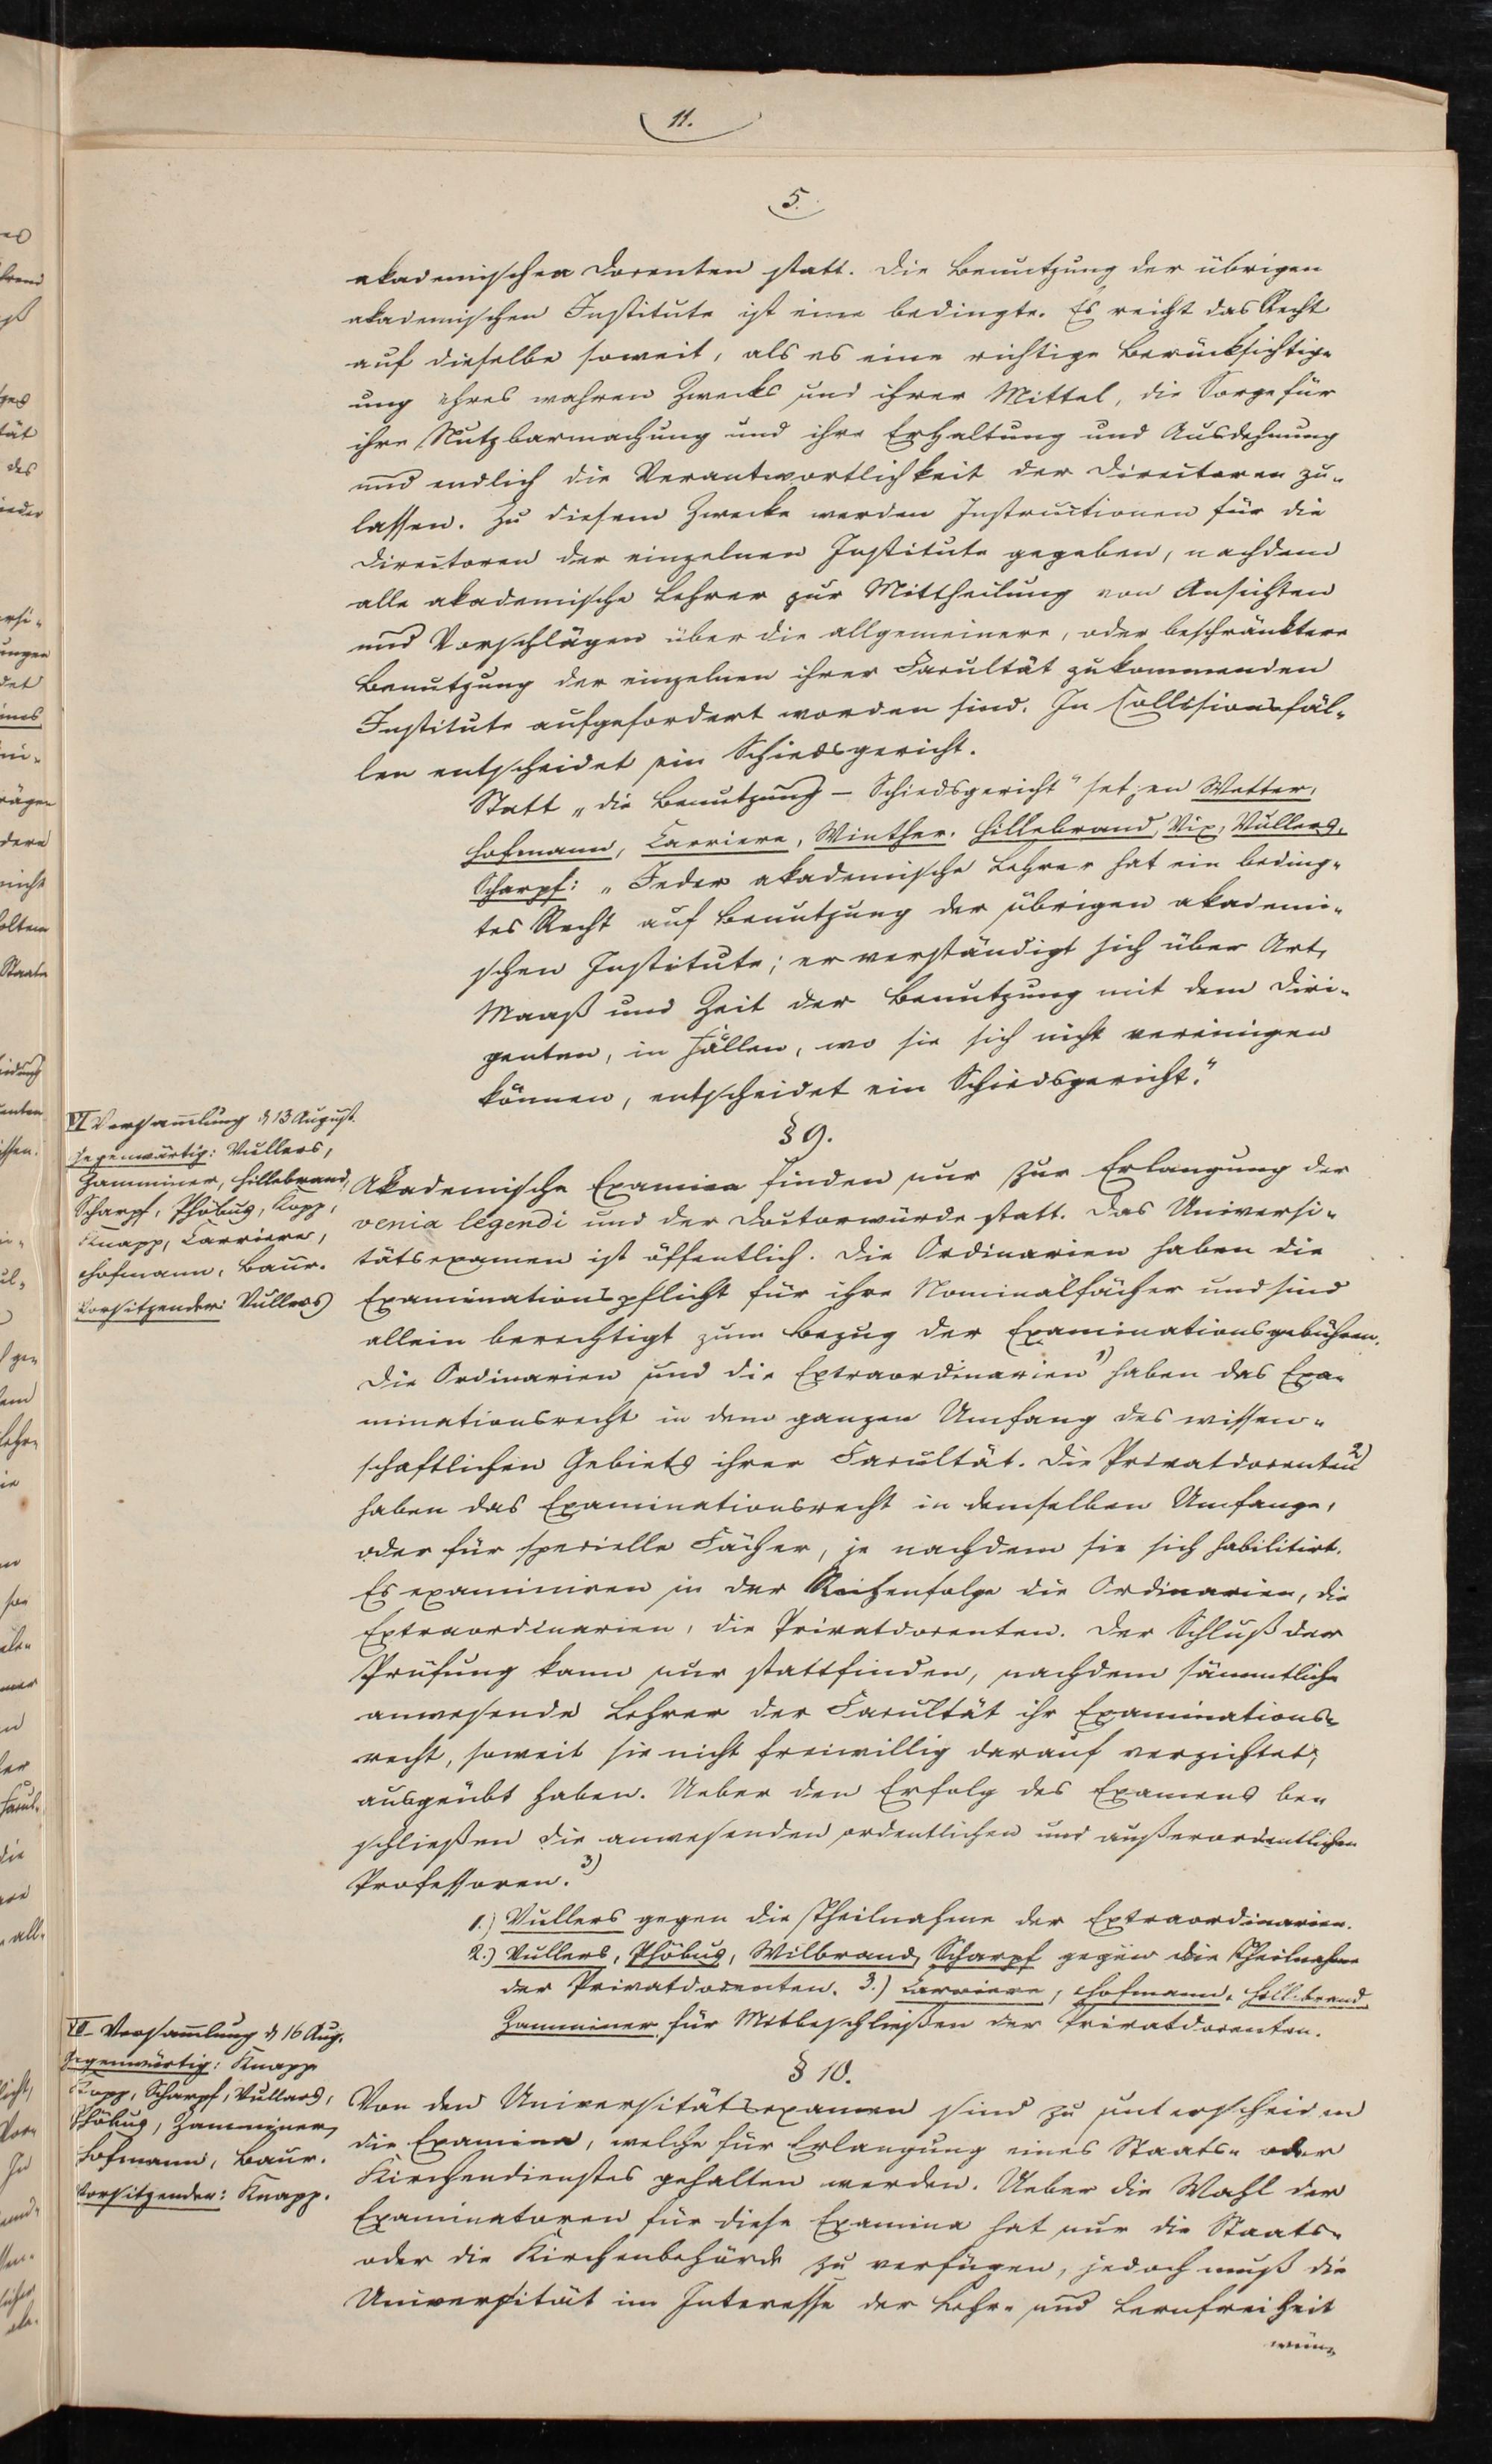 11.
5.
akademischen Docenten statt. Die Benutzung der übrigen
akademischen Institute ist eine bedingte. Es reicht das Recht
auf dieselbe soweit, als es eine richtige Berücksichtig-
ung ihres wahren Zwecks und ihrer Mittel, die Sorge für
ihre Nutzbarmachung und ihre Erhaltung und Ausdehnung
und endlich die Verantwortlichkeit der Directoren zu-
lassen. Zu diesem Zwecke werden Instructionen für die
Directoren der einzelnen Institute gegeben, nachdem
alle akademische Lehrer zur Mittheilung von Ansichten
und Vorschlägen über die allgemeinere, oder beschränktere
Benutzung der einzelnen ihrer Facultät zukommenden
Institute aufgefordert worden sind. In Collisionsfäl-
len entscheidet ein Schiedsgericht.
Statt „die Benutzung – Schiedsgericht" setzen Wetter,
Hofmann, Carriere, Winther, Hillebrand, Vix, Vullers,
Scharpf: „Jeder akademische Lehrer hat ein beding-
tes Recht auf Benutzung der übrigen akademi-
schen Institute; er verständigt sich über Art,
Maaß und Zeit der Benutzung mit dem Diri-
genten, in Fällen, wo sie sich nicht vereinigen
können, entscheidet ein Schiedsgericht."
VI Versam̄lung d 13 August.
Gegenwärtig: Vullers,
Zamminer, Hillebrand,
Scharpf, Phöbus, Kopp,
Knapp, Carriere,
Hofmann, Baur.
Vorsitzender: Vullers
§ 9.
Akademische Examina finden nur zur Erlangung der
venia legendi und der Doctorwürde statt. Das Universi-
tätsexamen ist öffentlich. Die Ordinarien haben die
Examinationspflicht für ihre Nominalfächer und sind
allein berechtigt zum Bezug der Examinationsgebühren.
Die Ordinarien und die Extraordinarien 1) haben das Exa-
minationsrecht in dem ganzen Umfang des wissen-
schaftlichen Gebiets ihrer Facultät. Die Privatdocenten 2)
haben das Examinationsrecht in demselben Umfange,
oder für specielle Fächer, je nachdem sie sich habilitirt.
Es examiniren in der Reihenfolge die Ordinarien, die
Extraordinarien, die Privatdocenten. Der Schluß der
Prüfung kann nur stattfinden, nachdem sämmtliche
anwesende Lehrer der Facultät ihr Examinations-
recht, soweit sie nicht freiwillig darauf verzichtet,
ausgeübt haben. Ueber den Erfolg des Examens be-
schließen die anwesenden ordentlichen und außerordentlichen
Professoren. 3)
1.) Vullers gegen die Theilnahme der Extraordinarien.
2.) Vullers, Phöbus, Wilbrand, Scharpf gegen die Theilnahme
der Privatdocenten. 3.) Carriere, Hofmann, Hillebrand
Zamminer für Mitbeschließen der Privatdocenten.
VII Versam̄lung d 16 Aug.
Gegenwärtig: Knapp
Kopp, Scharpf, Vullers,
Phöbus, Zamminer,
Hofmann, Baur.
Vorsitzender: Knapp.
§ 10.
Von den Universitätsexamen sind zu unterscheiden
die Examina, welche für Erlangung eines Staats- oder
Kirchendienstes gehalten werden. Ueber die Wahl der
Examinatoren für diese Examina hat nur die Staats-
oder die Kirchenbehörde zu verfügen, jedoch muß die
Universität im Interesse der Lehr- und Lernfreiheit
wün-